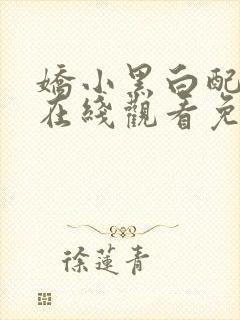 嬌小黑白配
在綫觀看免
徐蓮青